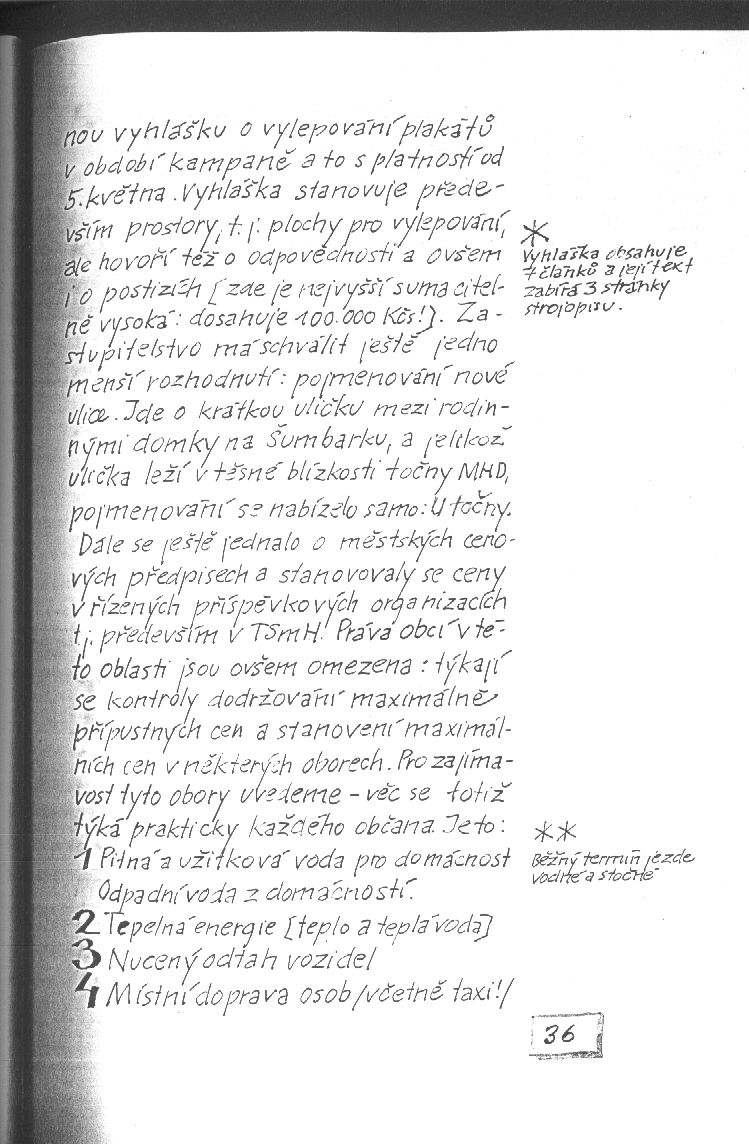 nou vyhlášku o vylepování plakátů
v období kampaně a to s platností od
5. května. Vyhláška stanovuje přede-
vším prostory, t.j. plochy pro vylepování,
ale hovoří též o odpovědnosti a ovšem
i o postizích [zde je nejvyšší suma citel-
ně vysoká: dosahuje 100.000 Kčs!). Za-
stupitelstvo má schválit ještě jedno
menší rozhodnutí: pojmenování nové
ulice. Jde o krátkou uličku mezi rodin-
nými domky na Šumbarku, a jelikož
ulička leží v těsné blízkosti točny MHD,
pojmenování se nabízelo samo: U točny.
Dále se ještě jednalo o městských ceno-
vých předpisech a stanovovaly se ceny
v řízených příspěvkových organizacích
tj. především v TSmH. Práva obcí v té-
to oblasti jsou ovšem omezena: týkají
se kontroly dodržování maximálně
přípustných cen a stanovení maximál-
ních cen v některých oborech. Pro zajíma-
vost tyto obory uvedeme - věc se totiž
týká prakticky každého občana. Je to:
1 Pitná a užitková voda pro domácnost
Odpadní voda z domácností.
2 Tepelná energie [teplo a teplá voda]
3 Nucený odtah vozidel
4 Místní doprava osob /včetně taxi!/
*
Vyhláška obsahuje
7 článků a její text
zabírá 3 stránky
strojopisu.
**
Běžný termín je zde
vodné a stočné
36